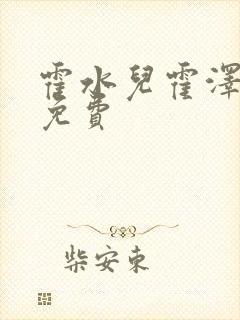 霍水兒霍澤
免費
柴安東